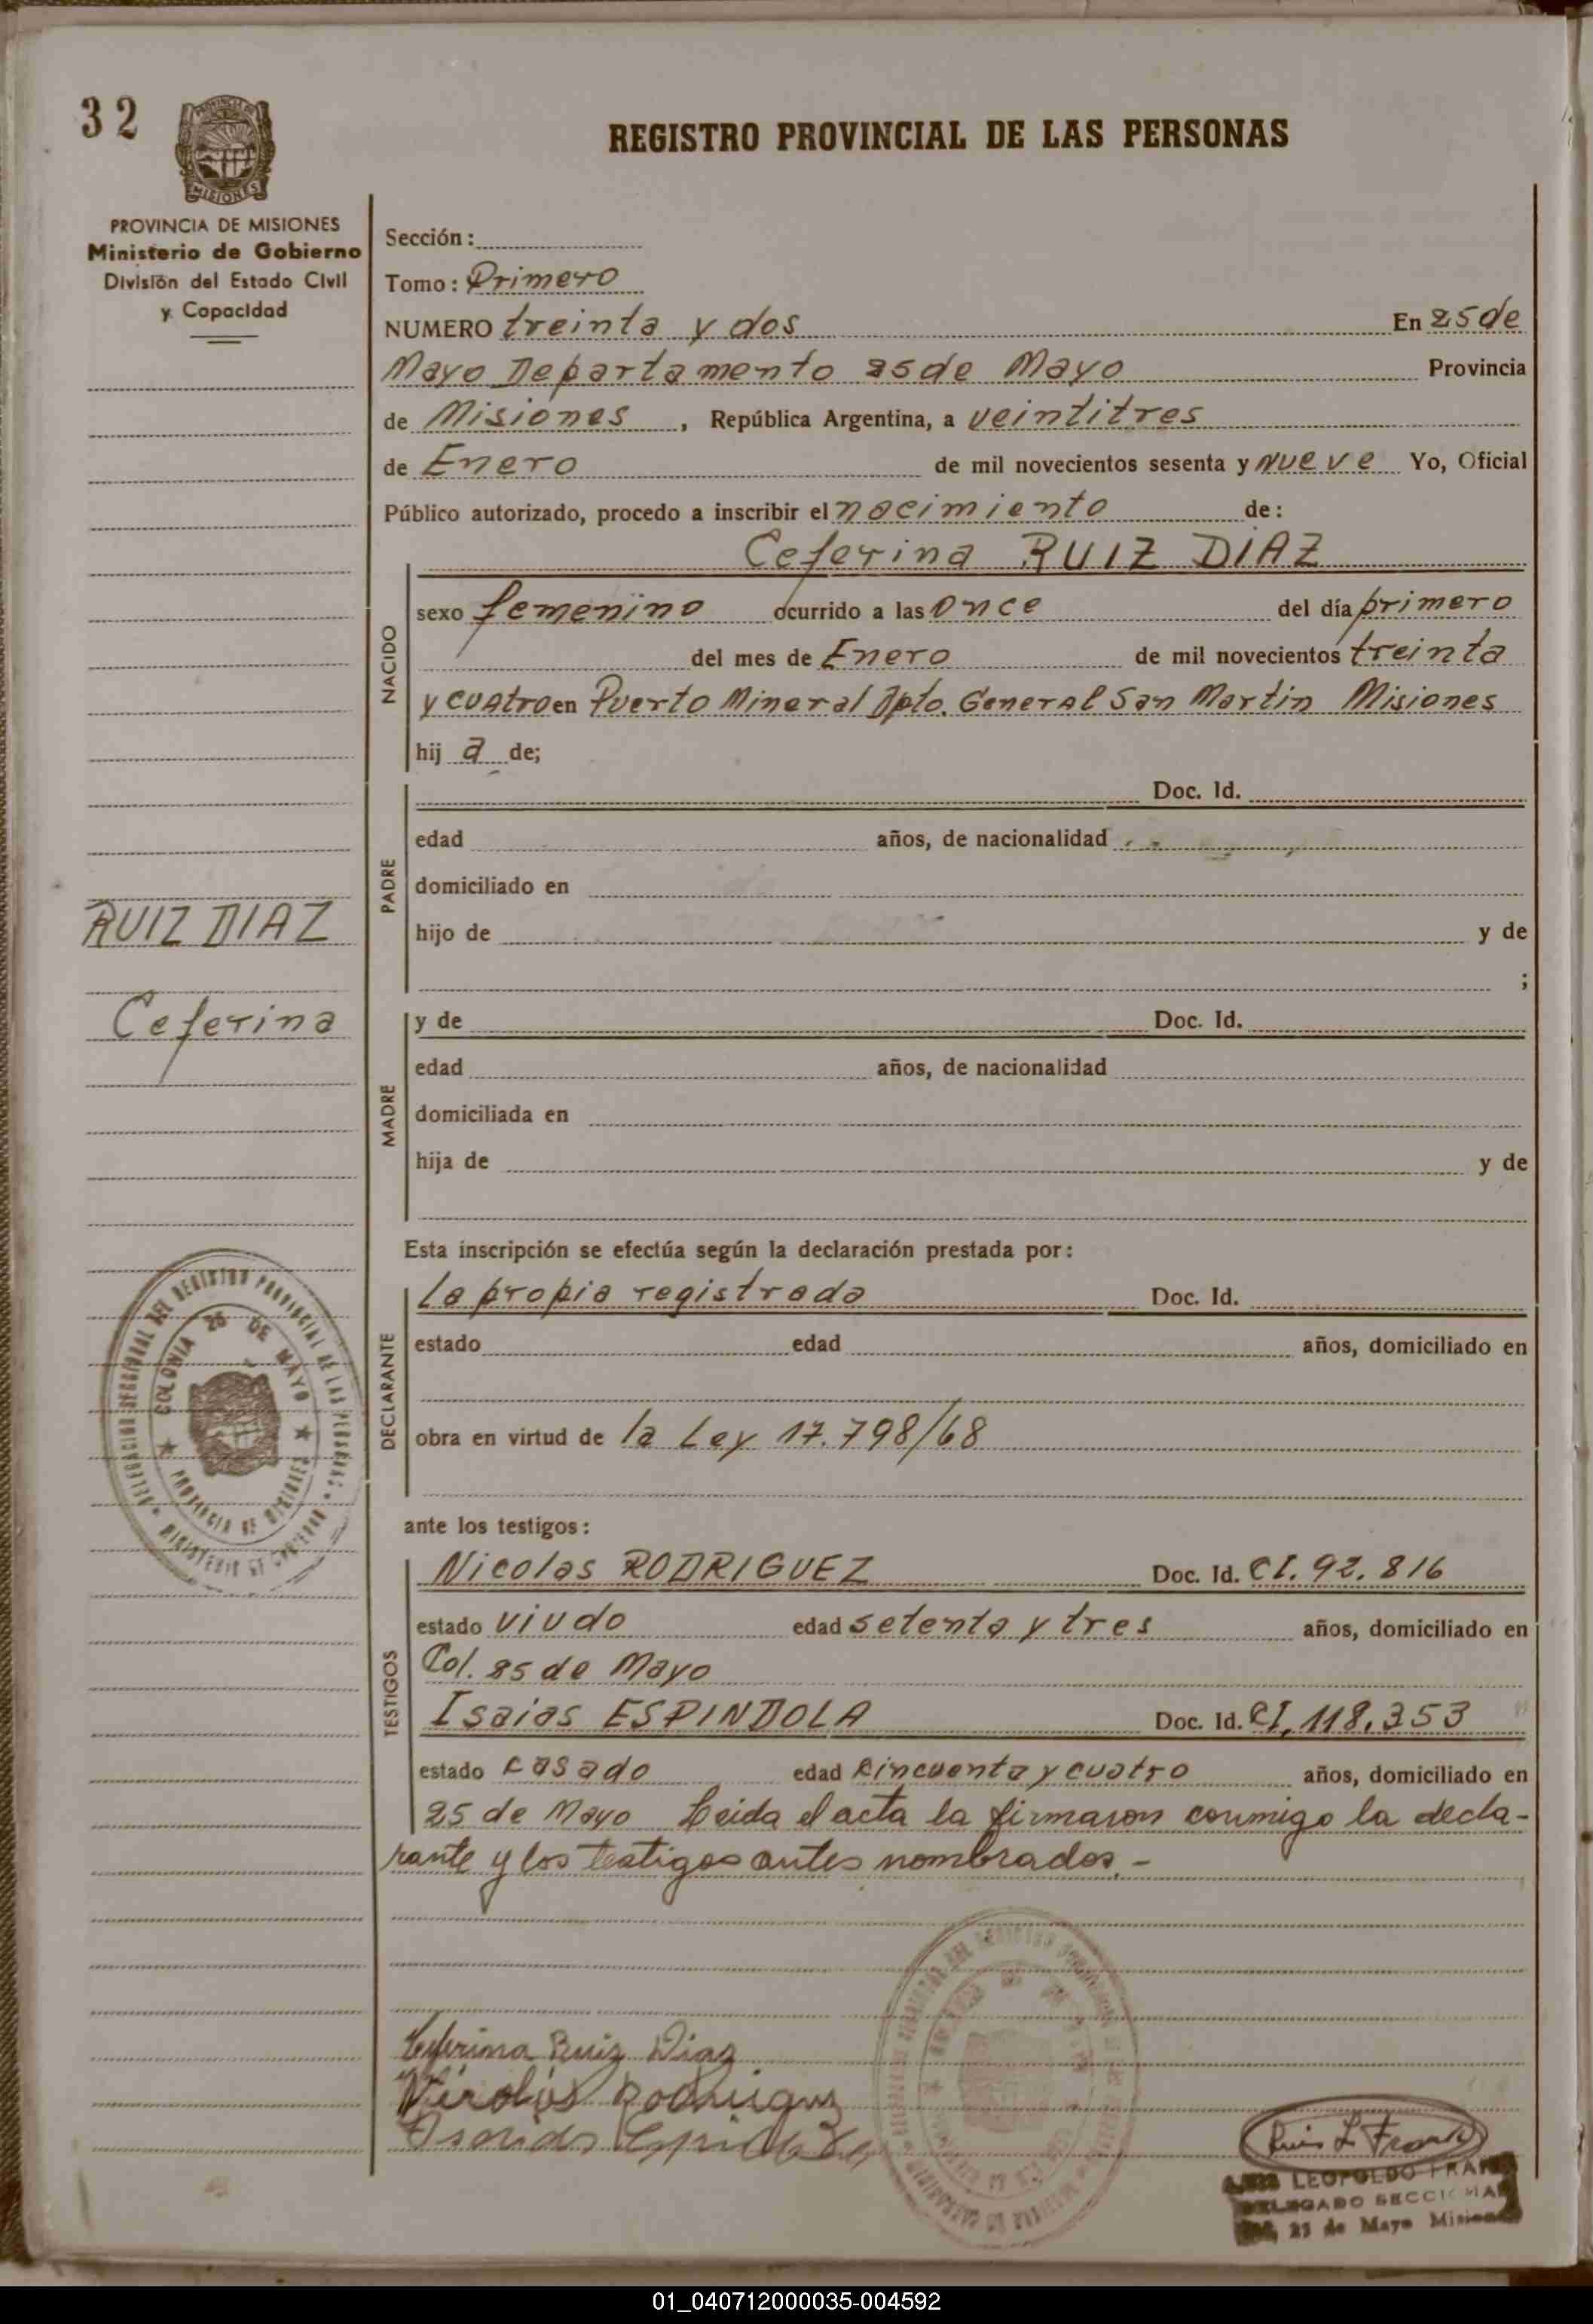 32
MISIONES
PROVINCIA DE MISIONES
Ministerio de Gobierno
División del Estado Civil
y Capacidad
REGISTRO PROVINCIAL DE LAS PERSONAS
Sección:
Tomo: Primero
NUMERO treinta y dos En 25 de
Mayo Departamento 25 de Mayo Provincia
de Misiones, República Argentina, a veintitres
de Enero de mil novecientos sesenta y nueve Yo, Oficial
Público autorizado, procedo a inscribir el nacimiento de:
Ceferina RUIZ DIAZ
NACIDO
sexo femenino ocurrido a las once del día primero
del mes de Enero de mil novecientos treinta
y cuatro en Puerto Mineral Dpto. General San Martin Misiones
hij a de;
PADRE
Doc. Id.
edad años, de nacionalidad
domiciliado en
hijo de y de
;
RUIZ DIAZ
Ceferina
MADRE
y de Doc. Id.
edad años, de nacionalidad
domiciliada en
hija de y de
Esta inscripción se efectúa según la declaración prestada por:
DECLARANTE
la propia registrada Doc. Id.
estado edad años, domiciliado en
obra en virtud de la Ley 17.798/68
DELEGACION SECCIONAL DEL REGISTRO PROVINCIAL DE LAS PERSONAS
COLONIA 25 DE MAYO
PROVINCIA DE MISIONES
MINISTERIO DE GOBIERNO
ante los testigos:
TESTIGOS
Nicolas RODRIGUEZ Doc. Id. CI. 92.816
estado viudo edad setenta y tres años, domiciliado en
Col. 25 de Mayo
Isaias ESPINDOLA Doc. Id. CI. 118.353
estado casado edad cincuenta y cuatro años, domiciliado en
25 de Mayo Leida el acta la firmaron conmigo la decla-
rante y los testigos antes nombrados.-
Ceferina Ruiz Diaz
Nicolas Rodriguez
Luis L Frank
LUIS LEOPOLDO FRANK
DELEGADO SECCIONAL
25 de Mayo Misiones
01_040712000035-004592